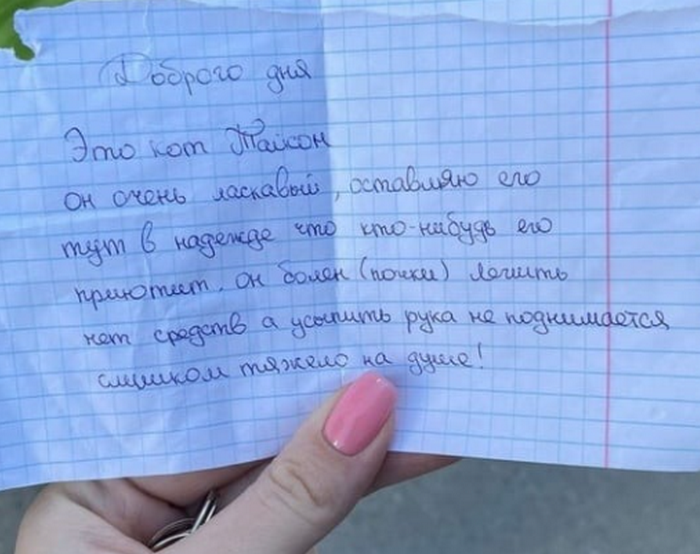 Доброго дня
Это кот Тайсон
он очень ласкавый, оставляю его
тут в надежде что кто-нибудь его
приютит. он болен (почки) лечить
нет средств а усыпить рука не поднимается
слишком тяжело на душе!